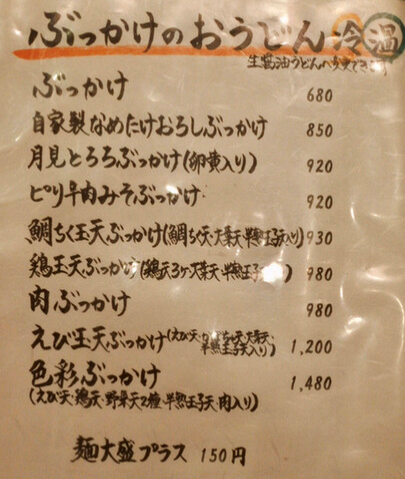 ぶっかけのおうどん 冷 温
生醤油うどんへ変更できます
ぶっかけ 680
自家製なめたけおろしぶっかけ 850
月見とろろぶっかけ(卵黄入り) 920
ピリ辛肉みそぶっかけ 920
鯛ちく玉天ぶっかけ(鯛ちく天・大葉天・半熟玉子天入り) 930
鶏玉天ぶっかけ(鶏天3ケ・大葉天・半熟玉子天入り) 980
肉ぶっかけ 980
えび玉天ぶっかけ(えび天・大葉天・半熟玉子天入り) 1,200
色彩ぶっかけ 1,480
(えび天・鶏天・野菜天2種・半熟玉子天・肉入り)
麺大盛プラス 150円